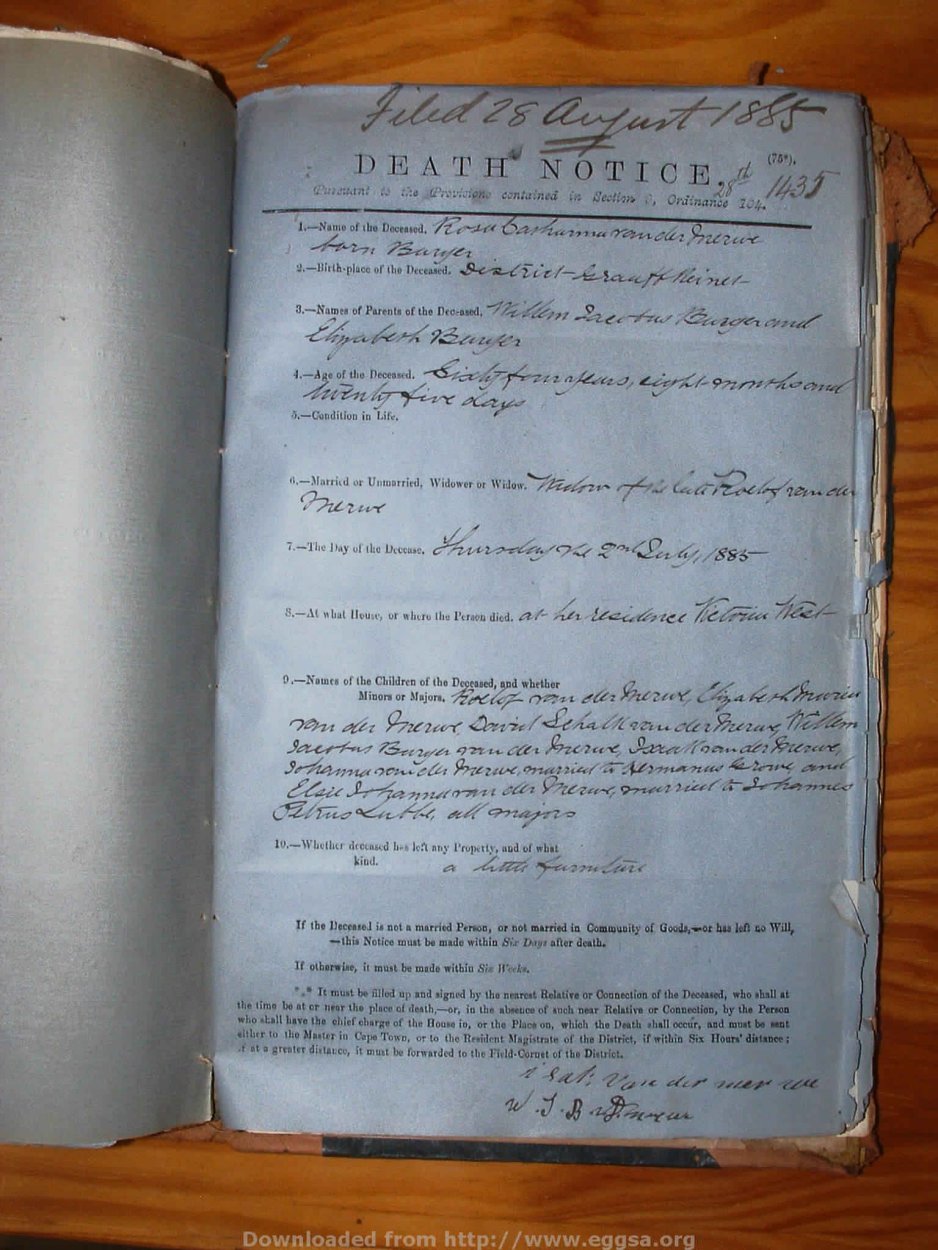 Filed 28 August 1885
(75*).
DEATH NOTICE,
28th 1435
Pursuant to the Provisions contained in Section 9, Ordinance 104.
1.—Name of the Deceased. Rosa Catharina van der Merwe
born Burger
2.—Birth-place of the Deceased. District Graaff Reinet
3.—Names of Parents of the Deceased, Willem Jacobus Burger and
Elizabeth Burger
4.—Age of the Deceased. Sixty four years, eight months and
twenty five days
5.—Condition in Life.
6.—Married or Unmarried, Widower or Widow. Widow of the late Roelof van der
Merwe
7.—The Day of the Decease. Thursday the 2nd July, 1885
8.—At what House, or where the Person died. at her residence Victoria West
9.—Names of the Children of the Deceased, and whether
Minors or Majors. Roelof van der Merwe, Elizabeth Maria
van der Merwe, David Schalk van der Merwe, Willem
Jacobus Burger van der Merwe, Izaak van der Merwe,
Johanna van der Merwe, married to Hermanus Crowe, and
Elsie Johanna van der Merwe, married to Johannes
Petrus Lubbe, all majors
10.—Whether deceased has left any Property, and of what
kind. a little furniture
If the Deceased is not a married Person, or not married in Community of Goods,—or has left no Will,
—this Notice must be made within Six Days after death.
If otherwise, it must be made within Six Weeks.
*** It must be filled up and signed by the nearest Relative or Connection of the Deceased, who shall at
the time be at or near the place of death,—or, in the absence of such near Relative or Connection, by the Person
who shall have the chief charge of the House in, or the Place on, which the Death shall occur, and must be sent
either to the Master in Cape Town, or to the Resident Magistrate of the District, if within Six Hours' distance;
if at a greater distance, it must be forwarded to the Field-Cornet of the District.
i sak van der mer we
W. J. B
Downloaded from http://www.eggsa.org